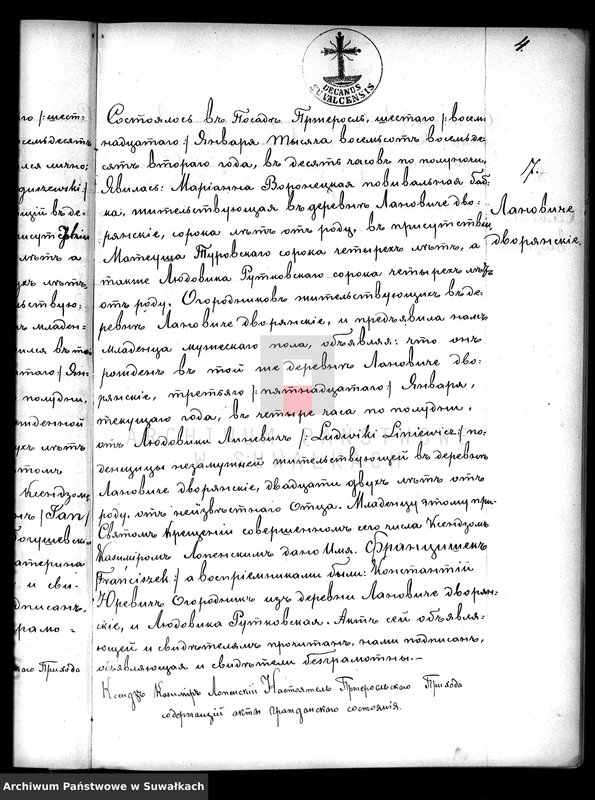 4.
DECANUS
SUVALCENSIS
7.
Лановиче
дворянскіе,
Состоялось въ Посадѣ Пржеросль, шестаго /:восем
надцатаго:/ Января тысяча восемьсотъ восемьде
сятъ втораго года, въ десять часовъ по полуночи,
Явилась: Маріанна Воронецкая повивальная баб
ка, жительствующая въ деревнѣ Лановиче дво-
рянскіе, сорока лѣтъ отъ роду, въ присутствіи
Матеуша Туровскаго сорока четырехъ лѣтъ, а
также Людовика Рутковскаго сорока четырехъ лѣтъ
отъ роду, Огородниковъ жительствующихъ въ де-
ревнѣ Лановиче дворянскіе, и предъявила намъ
младенца мужескаго пола, объявляя: что онъ
рожденъ въ той же деревнѣ Лановиче дво-
рянскіе, третьяго /:пятнадцатаго:/ Января,
текущаго года, въ четыре часа по полудни,
отъ Людовики Линевичъ /:Ludwiki Liniewicz:/ по-
денщицы незамужней жительствующей въ деревнѣ
Лановиче дворянскіе, двадцати двухъ лѣтъ отъ
роду, отъ неизвѣстнаго Отца. Младенцу этому при
Святомъ Крещеніи совершенномъ сего числа Ксендзомъ
Казиміромъ Лопенскимъ дано Имя, Францишекъ
Franciszek:/ а воспріемниками были: Константій
Юревичъ Огородникъ изъ деревни Лановиче дворян-
скіе, и Людовика Рутковская. Актъ сей объявля-
ющей и свидѣтелямъ прочитанъ, нами подписанъ,
объявляющая и свидѣтели безграмотны.—
Ксендзъ Казиміръ Лопенскій Настоятель Пржерослскаго Прихода
содержащій акты гражданскаго состоянія.
Archiwum Państwowe w Suwałkach